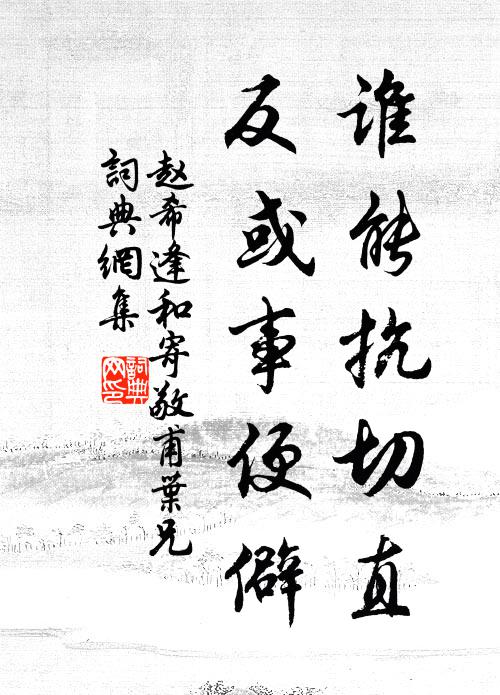 谁能抗切直
反或事便僻
赵希逢和寄敬甫葉兄
詞典網集
詞典網印